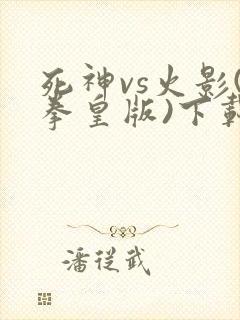 死神vs火影(
拳皇版)下載
潘從武